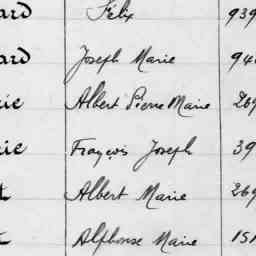 ard Félix 939
ard Joseph Marie 94
rie Albert Pierre Marie 269
rie François Joseph 39
t Albert Marie 269
t Alphonse Marie 151